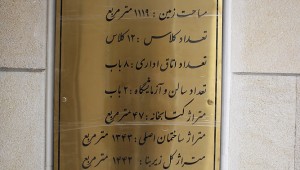 مساحت زمین : ۱۱۱۹ متر مربع
تعداد کلاس : ۱۲ کلاس
تعداد اتاق اداری : ۸ باب
تعداد سالن و آزمایشگاه : ۲ باب
متراژ کتابخانه : ۴۷ متر مربع
متراژ ساختمان اصلی : ۱۳۴۳ متر مربع
متراژ کل زیر بنا : ۱۴۴۲ متر مربع